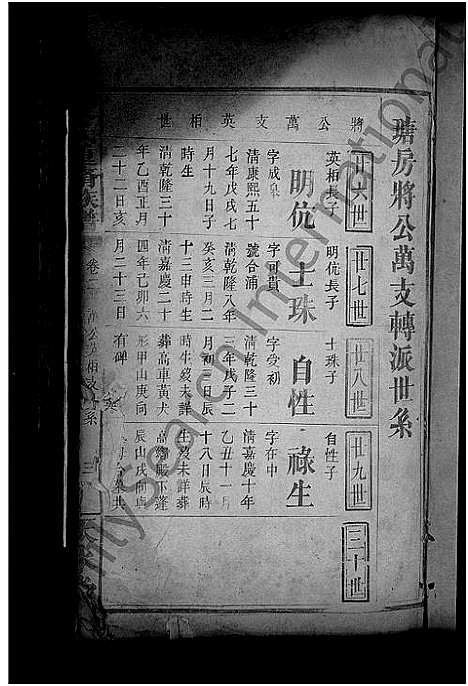 瑭房將公萬支轉派世系
將公萬支英相世
廿六世
英相長子
明伉
字成臬
清康熙五十
七年戊戌七
月十九日子
時生
清乾隆三十
年乙酉正月
二十二日亥
廿七世
明伉長子
士珠
字可貴
號合浦
清乾隆八年
癸亥三月二
十三申時生
清嘉慶二十
四年己卯六
月二十三日
廿八世
士珠子
自性
字受初
清乾隆三十
三年戊子二
月初三日辰
時生歿未詳
葬高車黃犬
形甲山庚向
有碑
廿九世
自性子
祿生
字在中
清嘉慶十年
乙丑十一月
十八日辰時
生歿未詳葬
辰山戌向
三十世
卷二
三